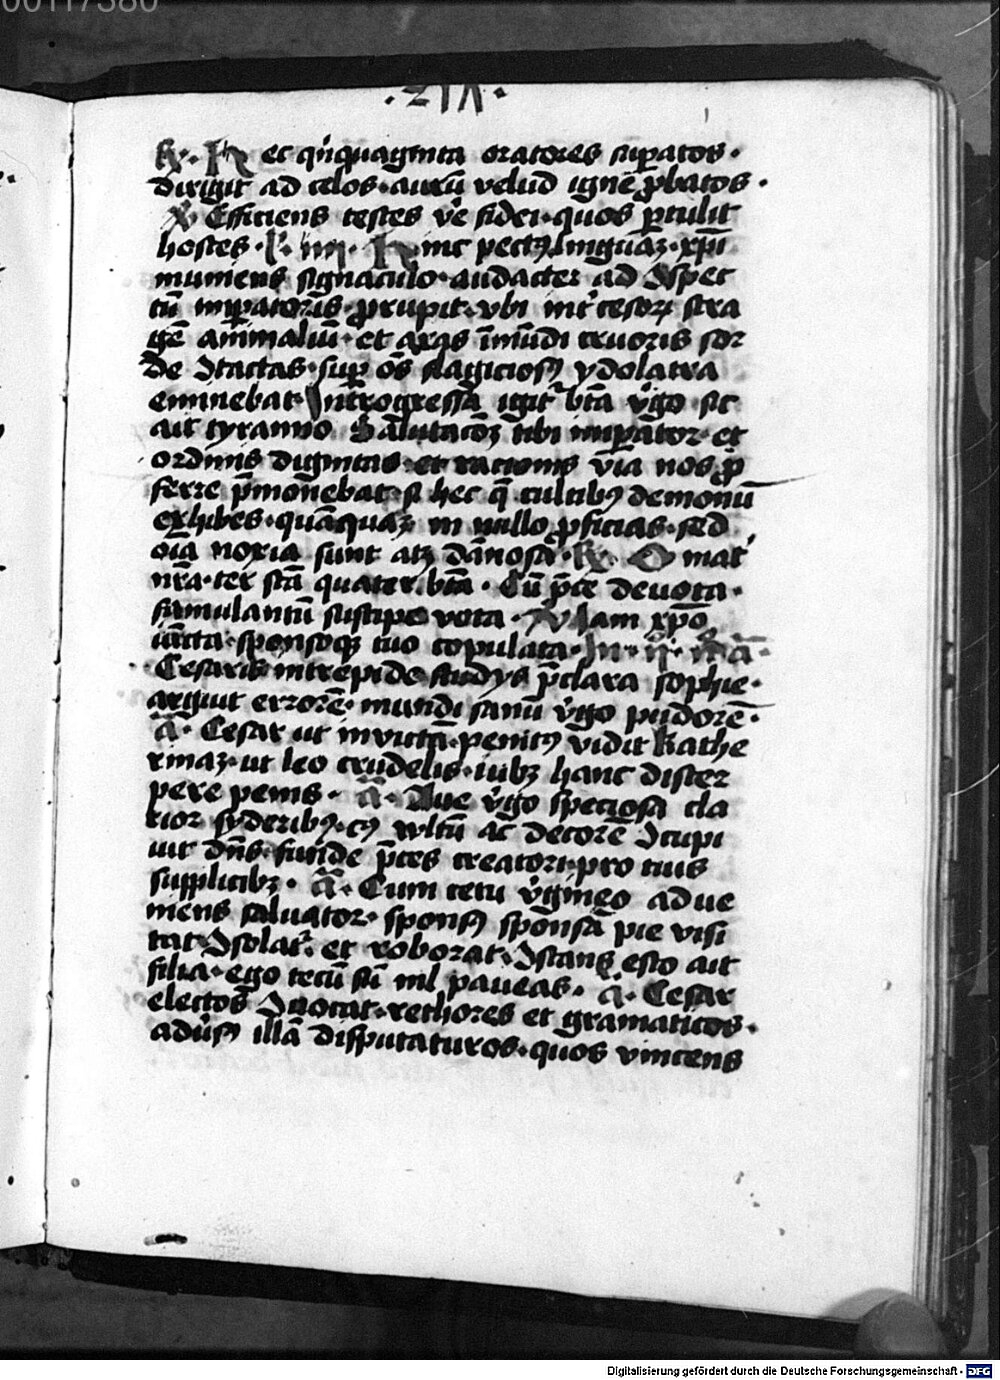 00117380
R. Hec qͥnquaginta oratores suꝑatos·
dirigit ad celos·aurū velud ignē ꝓbatos·
V Efficiens testes vͤe fidei·quos ꝑtulit
hostes· Hinc pectꝰ linguāꝫ·xp̄i
muniens signaculo·audacter ad Ↄspec
tū imꝑatoris·ꝓrupit·vbi int͛ cesoꝝ stra
gē animaliū·et aras īmūdi cruoris sor
de Ↄtactas·suꝑ oēs flagiciosꝰ ydolatra
eminebat·Introgressa igit͛ bt̄a v͛go sic
ait tyranno Salutacōꝫ tibi imꝑator et
ordinis dignitas·et racionis via nos ꝓ
ferre p̄monebat·si hec q̄ cultibꝰ demonū
exhibes·quāquaꝫ in nullo ꝓficias·sed
oīa noxia sunt atqꝫ dānosa·R. O mat͛
nr̄a·ter sc̄a quater bt̄a· Cū p̄ce deuota·
famulantū suscipe vota· V Iam xp̄o
iūcta·sponsoqꝫ tuo copulata·In·ij·
Cesaris intrepide studijs p̄clara sophie·
arguit errorē·mundi sanū v͛go pudorē·
ā· Cesar ut inuictā·penitꝰ vidit Kathe
rinaꝫ·ut leo crudelis·iubꝫ hanc discer
pere penis· ā· Aue v͛go speciosa cla
rior syderibꝰ·cꝰ wltū ac decorē Ↄcupi
uit dn̄s·funde p̄ces creatori·pro tuis
supplicibꝫ· ā· Cum cetu v͛gineo adue
niens saluator·sponsꝰ sponsā pie visi
tat Ↄsolat͛·et roborat·Ↄstans esto ait
filia·ego tecū sū nil paueas· ā· Cesar
electos Ↄuocat·rethores et gramaticos·
adu͛sꝰ illā disputaturos·quos vincens
Digitalisierung gefördert durch die Deutsche Forschungsgemeinschaft - DFG